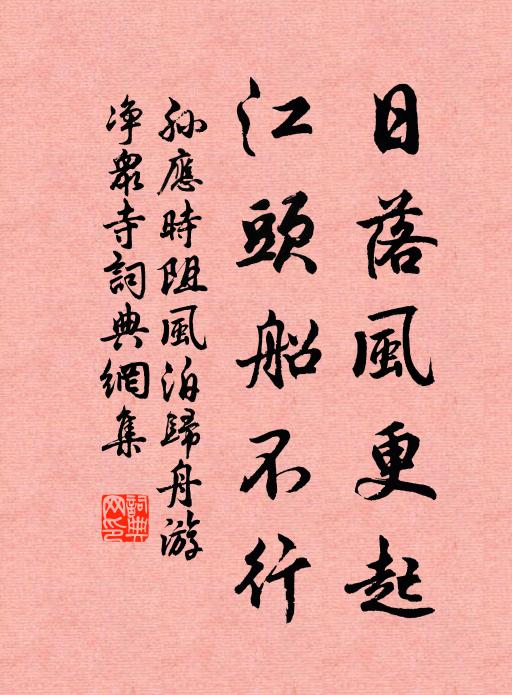 日落風更起
江頭船不行
孫應時阻風泊歸舟游
净眾寺詞典網集
詞典
网印